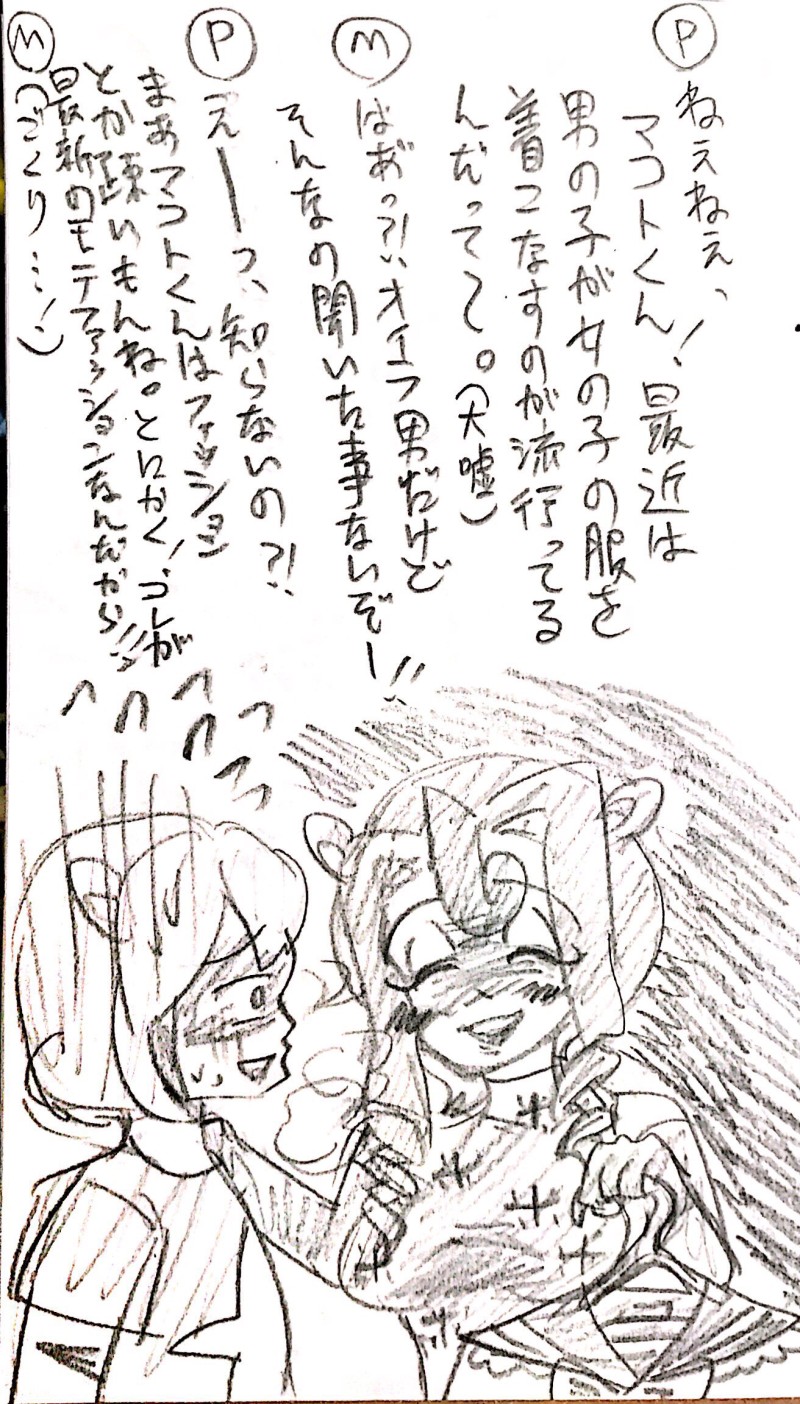 Ⓟ
ねぇねぇ、
マコトくん!最近は
男の子が女の子の服を
着こなすのが流行ってる
んだって〜。(大嘘)
Ⓜ
はあっ?!、オイラ男だけど
そんなの聞いた事ないぞー!!
Ⓟ
えーーっ、知らないの?!
まあマコトくんはファッション
とか疎いもんね。とにかく!コレが
最新のモテファッションなんだから!!
Ⓜ
(ごくり…!)